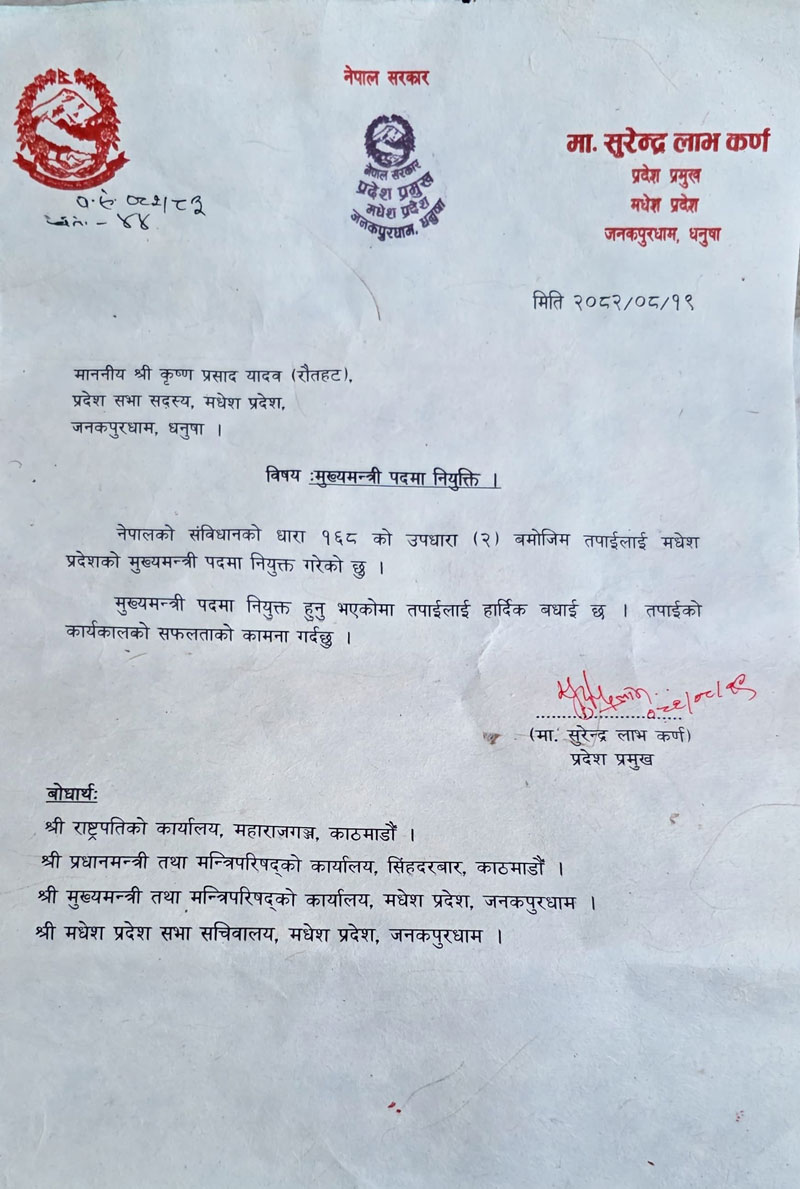 नेपाल सरकार
नेपाल सरकार
प्रदेश प्रमुख
मधेश प्रदेश
जनकपुरधाम, धनुषा
मा. सुरेन्द्र लाभ कर्ण
प्रदेश प्रमुख
मधेश प्रदेश
जनकपुरधाम, धनुषा
प.सं. ०८२/८३
च.नं. - ४४
मिति २०८२/०८/१९
माननीय श्री कृष्ण प्रसाद यादव (रौतहट),
प्रदेश सभा सदस्य, मधेश प्रदेश,
जनकपुरधाम, धनुषा ।
विषय :मुख्यमन्त्री पदमा नियुक्ति ।
नेपालको संविधानको धारा १६८ को उपधारा (२) बमोजिम तपाईलाई मधेश
प्रदेशको मुख्यमन्त्री पदमा नियुक्त गरेको छु ।
मुख्यमन्त्री पदमा नियुक्त हुनु भएकोमा तपाईलाई हार्दिक बधाई छ । तपाईको
कार्यकालको सफलताको कामना गर्दछु ।
(मा. सुरेन्द्र लाभ कर्ण)
प्रदेश प्रमुख
बोधार्थः
श्री राष्ट्रपतिको कार्यालय, महाराजगञ्ज, काठमाडौं ।
श्री प्रधानमन्त्री तथा मन्त्रिपरिषद्को कार्यालय, सिंहदरबार, काठमाडौं ।
श्री मुख्यमन्त्री तथा मन्त्रिपरिषद्को कार्यालय, मधेश प्रदेश, जनकपुरधाम ।
श्री मधेश प्रदेश सभा सचिवालय, मधेश प्रदेश, जनकपुरधाम ।